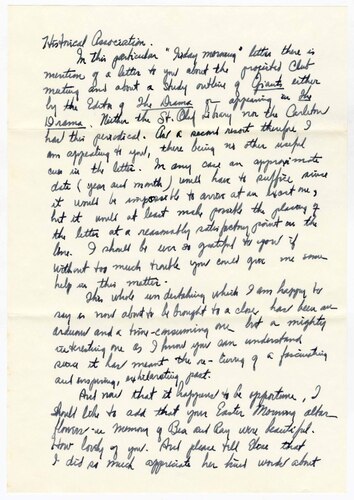 Historical Association.
In this particular "Friday morning" letter there is
mention of a letter to you about the projected Club
meeting and about a Study outline of Giants either
by the Editor of The Drama or appearing in The
Drama. Neither the St. Olaf Library nor the Carleton
has this periodical. As a second resort therefore I
am appealing to you, there being no other useful
cues in the letter. In any case an approximate
date (year and month) would have to suffice since
it would be impossible to arrive at an exact one,
but it would at least make possible the placing of
the letter at a reasonably satisfactory point on the
line. I should be ever so grateful to you if
without too much trouble you could give me some
help in this matter.
This whole undertaking which I am happy to
say is now about to be brought to a close has been an
arduous and a time-consuming one but a mighty
interesting one as I know you can understand
since it has meant the re-living of a fascinating
and inspiring, exhilarating past.
And now that it happens to be opportune, I
should like to add that your Easter Morning altar
flowers in memory of Bea and Ray were beautiful.
How lovely of you. And please tell Elsie that
I did so much appreciate her kind words about